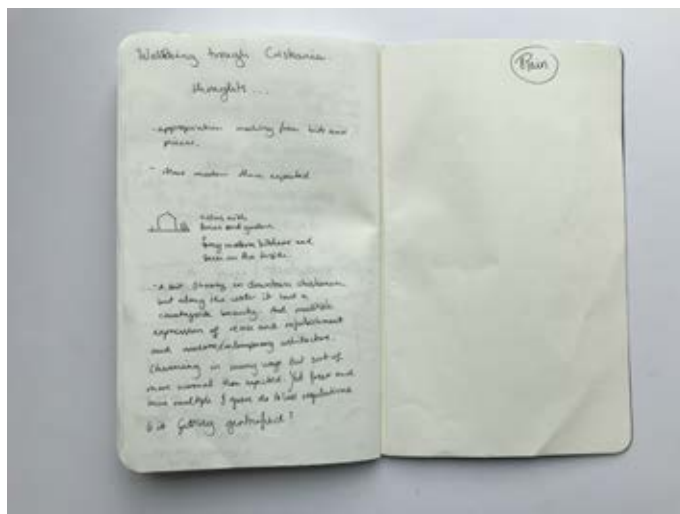 Walking through Cristiania
thoughts...
- appropriation making from bits and
pieces.
- More modern than expected
houses and gardens
modern kitchens and
on the inside
- A bit in downtown christiania
but along the water it has a
countryside beauty. And multiple
expression of reuse and refurbishment
and modern/contemporary architecture.
Charming in many ways but sort of
more normal than expected. Yet freer and
more multiple I guess due to less regulations
Is it getting gentrified?
Plain